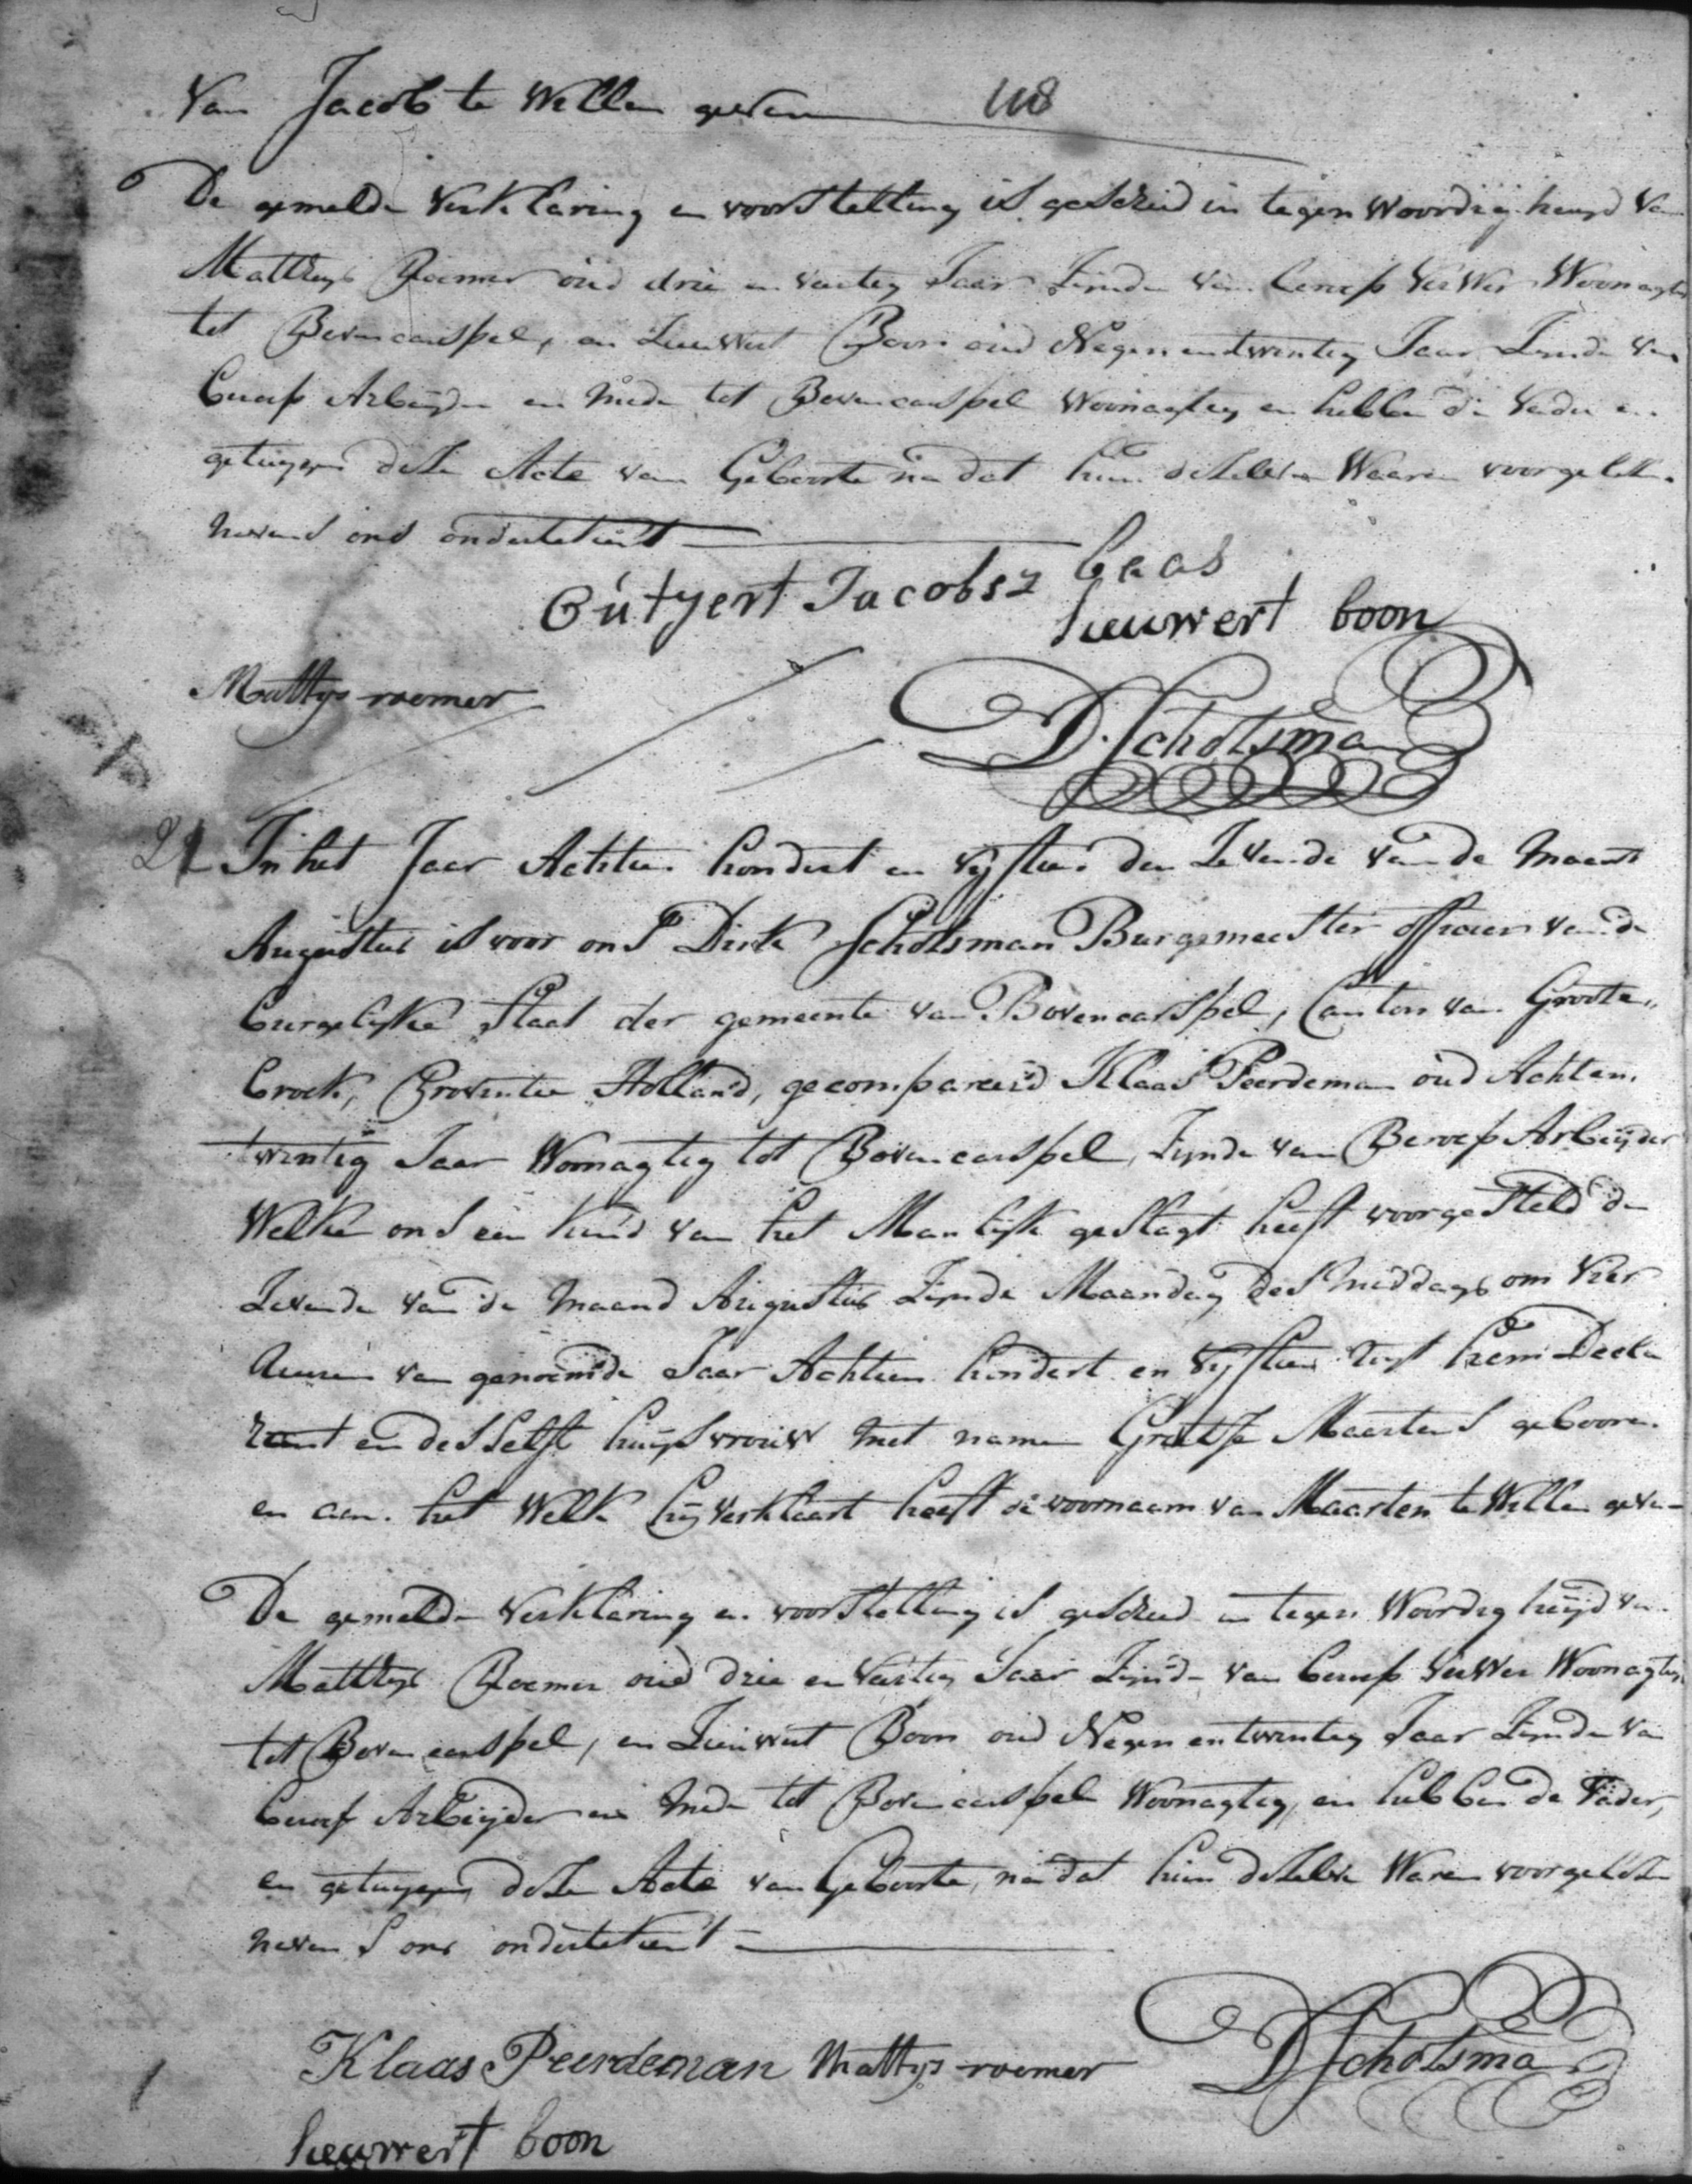 Van Jacob te Willen geeven 108
De gemelde Verklaring en voorstelling is geschied in tegen Woordigheijd Van
Matthijs Roemer oud drie en veertig Jaar Zijnde van beroep Verwer Woonagtig
tot Bovencarspel, en Lieuwert Boon oud Negen en twintig Jaar Zijnde van
beroep Arbeijder en mede tot Bovencarspel Woonagtig en hebben de Vader en
getuygen deze Acte van Geboorte na dat hun dezelve Waaren voorgelesen
nevens ons ondertekent
Gútjert Jacobsz
lieuwert boon
Mattijs roemer
D. Scholsman
21 In het Jaar Achtien hondert en vijftien den Zevende van de Maant
Augustus is voor ons Dirk Scholsman Burgemeester officier van de
burgelijke Staat der gemeente van Bovencarspel, Canton van Groote„
broek, Provintie Holland, gecompareerd Klaas Peerdeman oud Achten
twintig Jaar Woonagtig tot Bovencarspel, Zijnde van Beroep Arbeijder
Welke ons een kind van het Manlijk geslagt heeft voorgesteld den
Zevende van de Maand Augustus Zijnde Maandag des Middags om Vier
Uuren van genoemde Jaar Achtien hondert en Vijftien uijt hem Decla
rant en deszelfs huijsvrouw met namen Grietje Maartens gebooren
en aan het Welk hij verklaart heeft de voornaam van Maarten te Willen geven
De gemelde Verklaring en voorstelling is geschied in tegen Woordigheijd van
Matthijs Roemer oud drie en Veertig Jaar Zijnde van beroep Verwer Woonagtig
tot Bovencarspel, en Lieuwert Boon oud Negen en twintig Jaar Zijnde van
beroep Arbeijder en mede tot Bovencarspel Woonagtig, en hebben de Vader,
en getuygen, deze Acte van Geboorte, na dat hun dezelve Waren voorgelesen
nevens ons ondertekent
Klaas Peerdeman Mattijs roemer D Scholsman
lieuwert boon